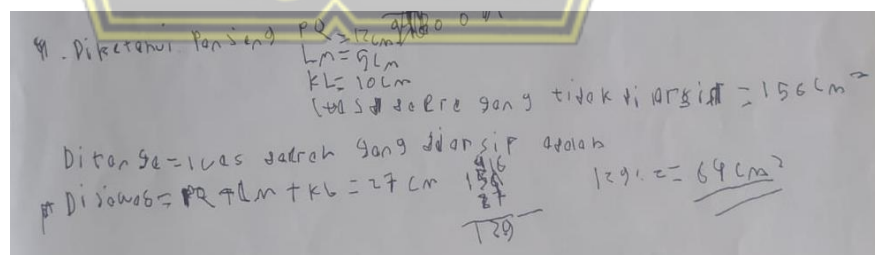 4. Diketahui Panjang PQ = 12cm
Lm = 5cm
KL = 10cm
luas daera yang tidak di arsir = 156 cm²
Ditanya = luas daerah yang diarsip adalah
Dijawab = PQ + Lm + KL = 27 cm
156
27
129
129 : 2 = 64 cm²